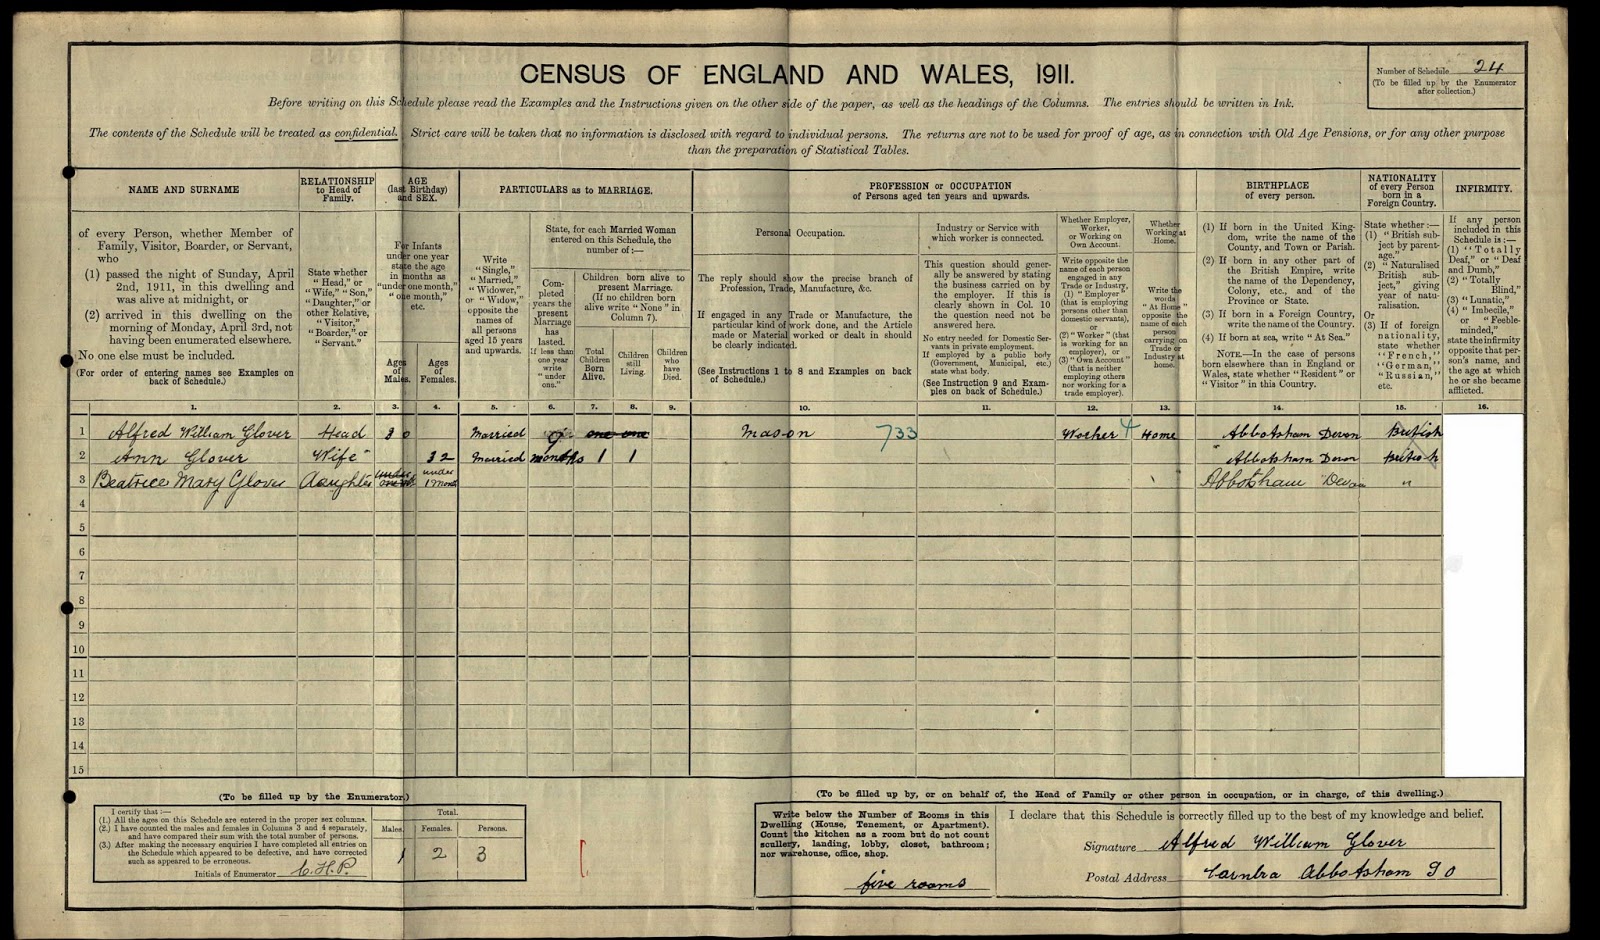 CENSUS OF ENGLAND AND WALES, 1911.
Number of Schedule 24
(To be filled up by the Enumerator
after collection.)
Before writing on this Schedule please read the Examples and the Instructions given on the other side of the paper, as well as the headings of the Columns. The entries should be written in Ink.
The contents of the Schedule will be treated as confidential. Strict care will be taken that no information is disclosed with regard to individual persons. The returns are not to be used for proof of age, as in connection with Old Age Pensions, or for any other purpose
than the preparation of Statistical Tables.
NAME AND SURNAME
of every Person, whether Member of
Family, Visitor, Boarder, or Servant,
who
(1) passed the night of Sunday, April
2nd, 1911, in this dwelling and
was alive at midnight, or
(2) arrived in this dwelling on the
morning of Monday, April 3rd, not
having been enumerated elsewhere.
No one else must be included.
(For order of entering names see Examples on
back of Schedule.)
RELATIONSHIP
to Head of
Family.
State whether
"Head," or
"Wife," "Son,"
"Daughter," or
other Relative,
"Visitor,"
"Boarder," or
"Servant."
AGE
(last Birthday)
and SEX.
For Infants
under one year
state the age
in months as
"under one month,"
"one month,"
etc.
Ages
of
Males.
Ages
of
Females.
PARTICULARS as to MARRIAGE.
Write
"Single,"
"Married,"
"Widower,"
or "Widow,"
opposite the
names of
all persons
aged 15 years
and upwards.
State, for each Married Woman
entered on this Schedule, the
number of:—
Completed
years the
present
Marriage
has
lasted.
If less than
one year
write
"under
one."
Children born alive to
present Marriage.
(If no children born
alive write "None" in
Column 7).
Total
Children
Born
Alive.
Children
still
Living.
Children
who
have
Died.
PROFESSION or OCCUPATION
of Persons aged ten years and upwards.
Personal Occupation.
The reply should show the precise branch of
Profession, Trade, Manufacture, &c.
If engaged in any Trade or Manufacture, the
particular kind of work done, and the Article
made or Material worked or dealt in should
be clearly indicated.
(See Instructions 1 to 8 and Examples on back
of Schedule.)
Industry or Service with
which worker is connected.
This question should generally
be answered by stating
the business carried on by
the employer. If this is
clearly shown in Col. 10
the question need not be
answered here.
No entry needed for Domestic Servants
in private employment.
If employed by a public body
(Government, Municipal, etc.)
state what body.
(See Instruction 9 and Examples
on back of Schedule.)
Whether Employer,
Worker,
or Working on
Own Account.
Write opposite the
name of each person
engaged in any
Trade or Industry,
(1) "Employer"
(that is employing
persons other than
domestic servants),
or
(2) "Worker" (that
is working for an
employer), or
(3) "Own Account"
(that is neither
employing others
nor working for a
trade employer).
Whether
Working at
Home.
Write the
words
"At Home"
opposite the
name of each
person
carrying on
Trade or
Industry at
home.
BIRTHPLACE
of every person.
(1) If born in the United Kingdom,
write the name of the
County, and Town or Parish.
(2) If born in any other part of
the British Empire, write
the name of the Dependency,
Colony, etc., and of the
Province or State.
(3) If born in a Foreign Country,
write the name of the Country.
(4) If born at sea, write "At Sea."
NOTE.—In the case of persons
born elsewhere than in England or
Wales, state whether "Resident" or
"Visitor" in this Country.
NATIONALITY
of every Person
born in a
Foreign Country.
State whether:—
(1) "British subject
by parentage."
(2) "Naturalised
British subject,"
giving
year of naturalisation.
Or
(3) If of foreign
nationality,
state whether
"French,"
"German,"
"Russian,"
etc.
INFIRMITY.
If any person
included in this
Schedule is:—
(1) "Totally
Deaf," or "Deaf
and Dumb,"
(2) "Totally
Blind,"
(3) "Lunatic,"
(4) "Imbecile,"
or "Feeble-
minded,"
state the infirmity
opposite that person's
name, and
the age at which
he or she became
afflicted.
1. 2. 3. 4. 5. 6. 7. 8. 9. 10. 11. 12. 13. 14. 15. 16.
1 Alfred William Glover Head 30 Married 9 one one Mason 733 Worker 4 Home Abbotsham Devon British
2 Ann Glover Wife 32 Married months 1 1 Abbotsham Devon British
3 Beatrice Mary Glover Daughter under under 1 month Abbotsham Devon "
4
5
6
7
8
9
10
11
12
13
14
15
(To be filled up by the Enumerator.)
I certify that:—
(1.) All the ages on this Schedule are entered in the proper sex columns.
(2.) I have counted the males and females in Columns 3 and 4 separately,
and have compared their sum with the total number of persons.
(3.) After making the necessary enquiries I have completed all entries on
the Schedule which appeared to be defective, and have corrected
such as appeared to be erroneous.
Initials of Enumerator C.H.P.
Total.
Males. Females. Persons.
1 2 3
(To be filled up by, or on behalf of, the Head of Family or other person in occupation, or in charge, of this dwelling.)
Write below the Number of Rooms in this
Dwelling (House, Tenement, or Apartment).
Count the kitchen as a room but do not count
scullery, landing, lobby, closet, bathroom;
nor warehouse, office, shop.
five rooms
I declare that this Schedule is correctly filled up to the best of my knowledge and belief.
Signature Alfred William Glover
Postal Address Abbotsham